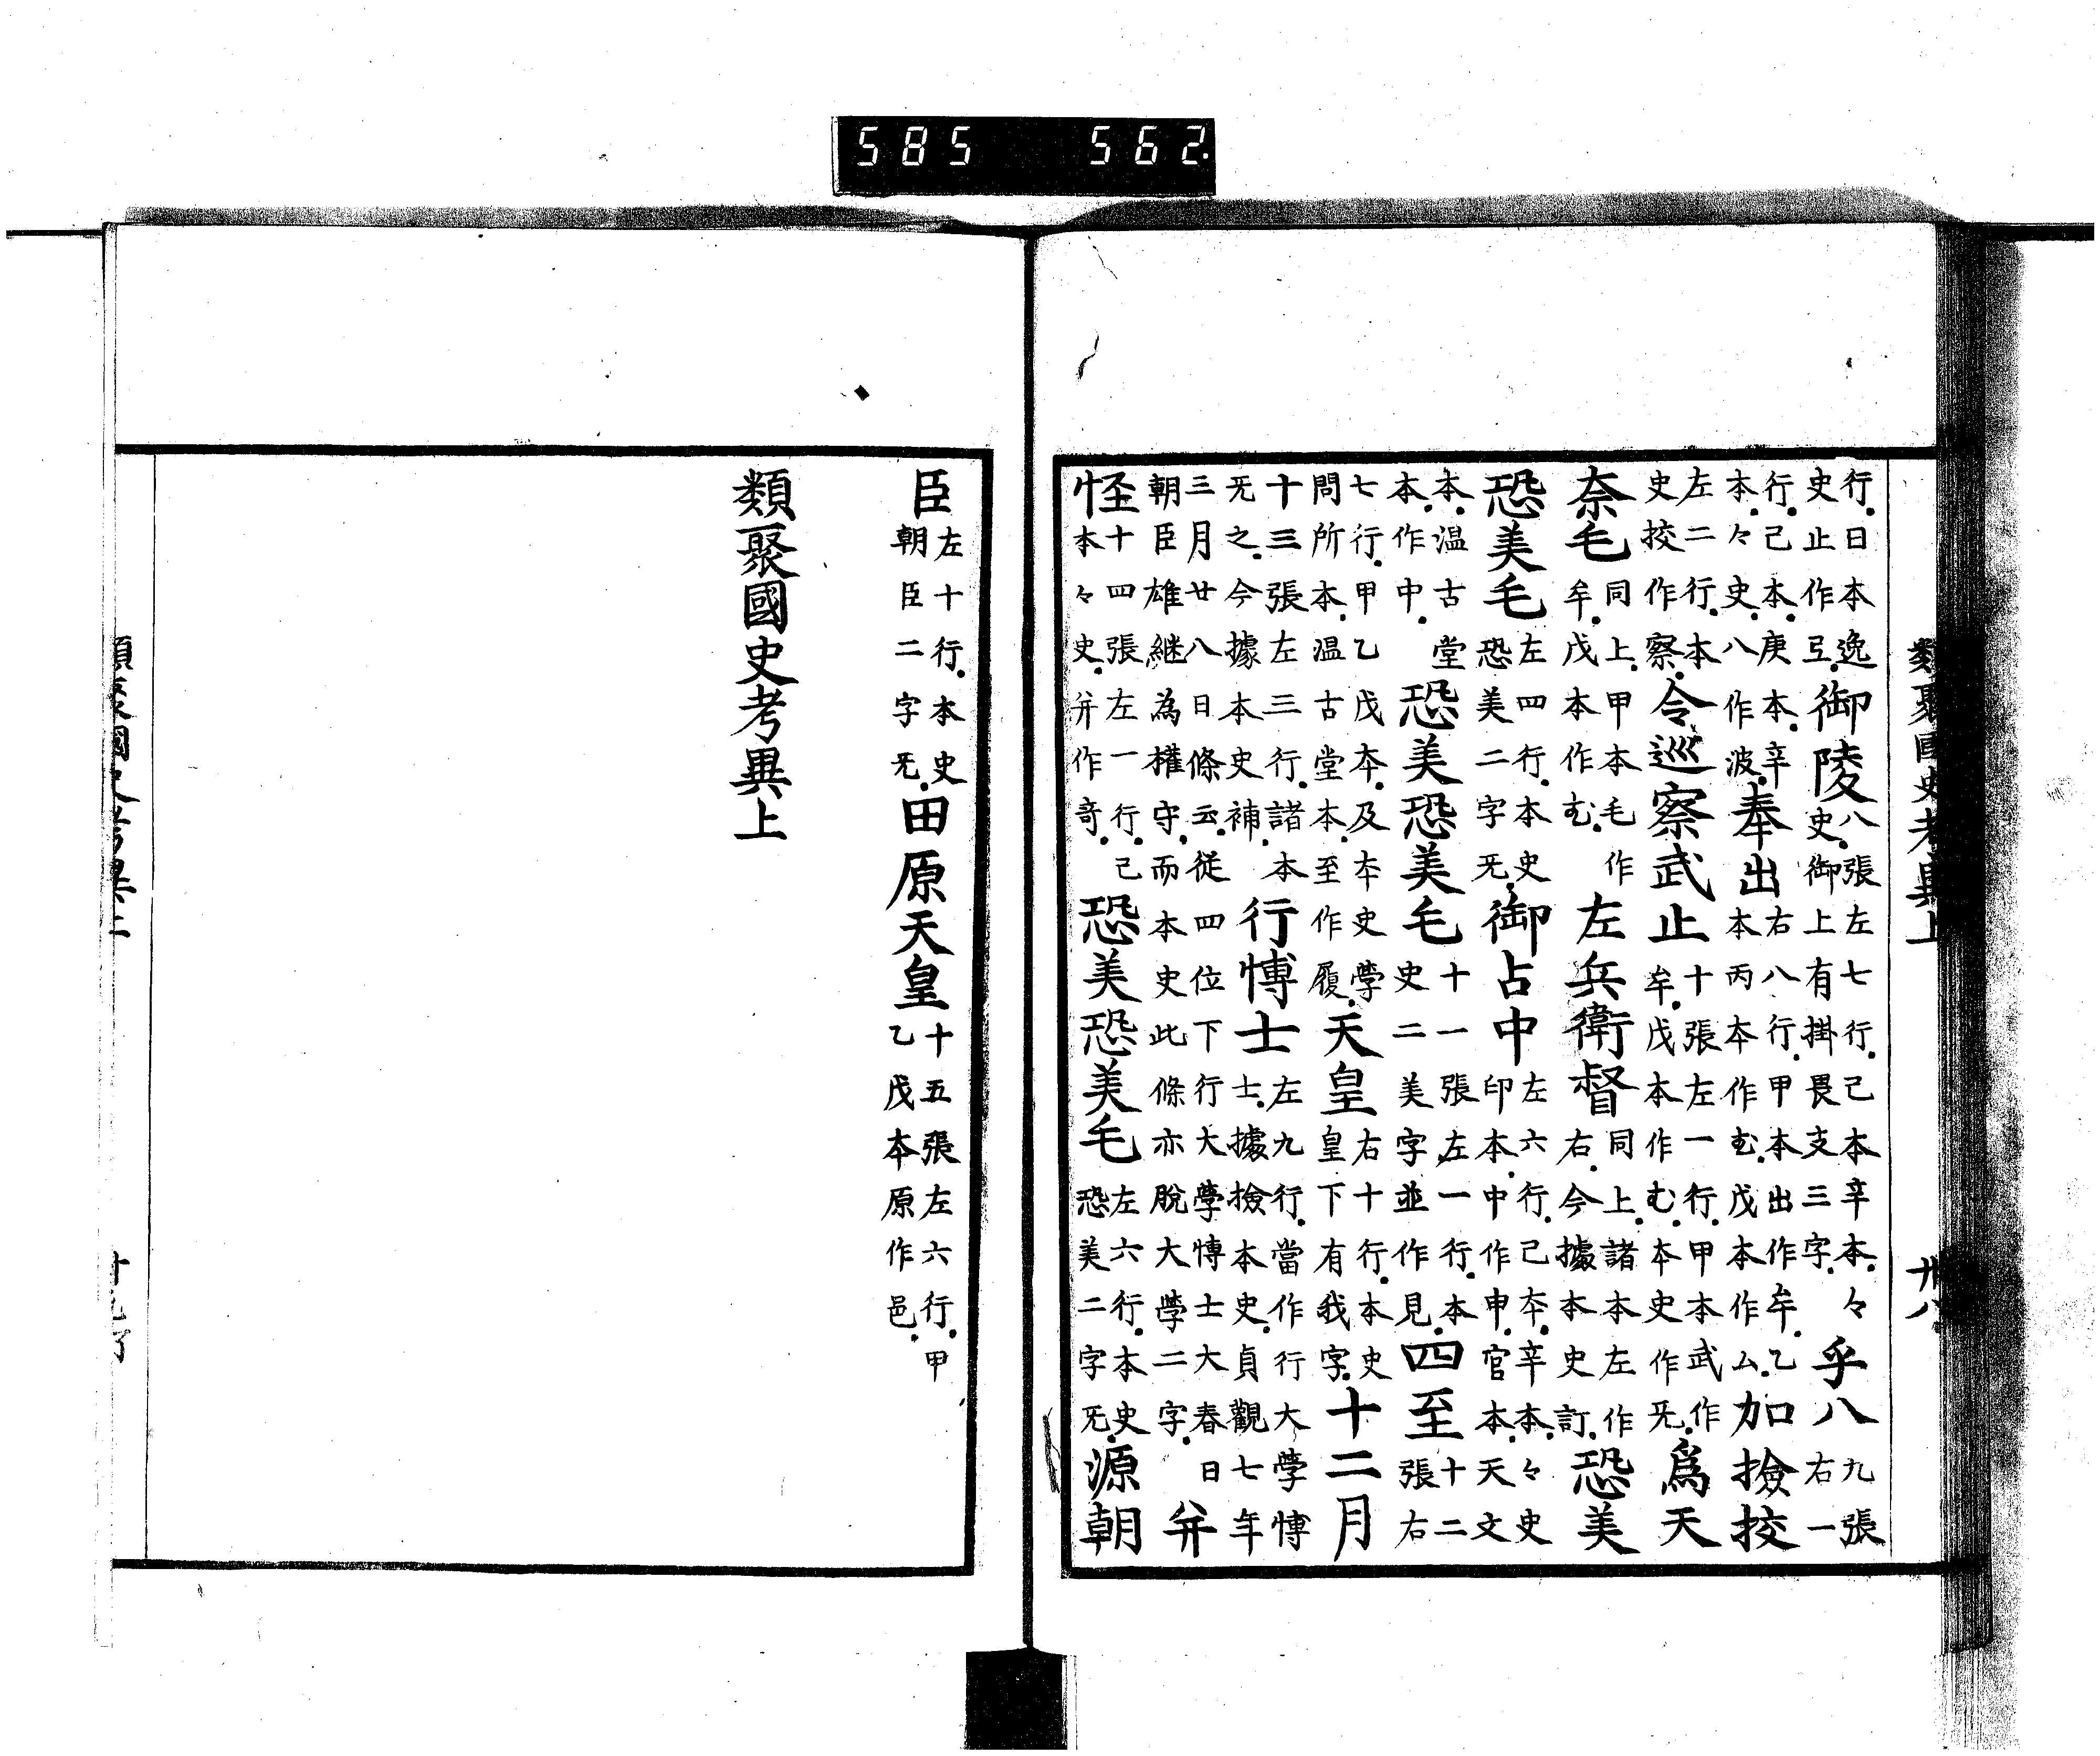 類聚國史考異上 卅八
行。日本逸史止作弖。御陵八張左七行。己本辛本。々史。御上有掛畏支三字。乎八九張右一
行。己本。庚本。辛本。々史。八作波。奉出右八行。甲本出作牟。乙本丙本作む。戊本作ム。加撿挍
左二行。本史挍作察。令巡察武止十張左一行。甲本武作牟。戊本作む。本史作旡。爲天
奈毛同上。甲本毛作牟。戊本作む。左兵衛督同上。諸本左作右。今據本史訂。恐美
恐美毛左四行。本史恐美二字旡。御占中左六行。己本。辛本。々史印本。中作申。官本。天文
本。温古堂本。作中。恐美恐美毛十一張左一行。本史二美字並作見。四至十二張右
七行。甲乙戊本。及本史學問所本。温古堂本。至作履。天皇右十行。本史皇下有我字。十二月
十三張左三行。諸本旡之。今據本史補。行愽士左九行。當作行大學愽士。據撿本史。貞觀七年
三月廿八日條云。從四位下行大學愽士大春日朝臣雄継為權守。而本史此條亦脫大學二字。并
怪十四張左一行。己本々史。并作奇。恐美恐美毛左六行。本史恐美二字旡。源朝
臣左十行。本史朝臣二字旡。田原天皇十五張左六行。甲乙戊本原作邑。
類聚國史考異上
585 562.